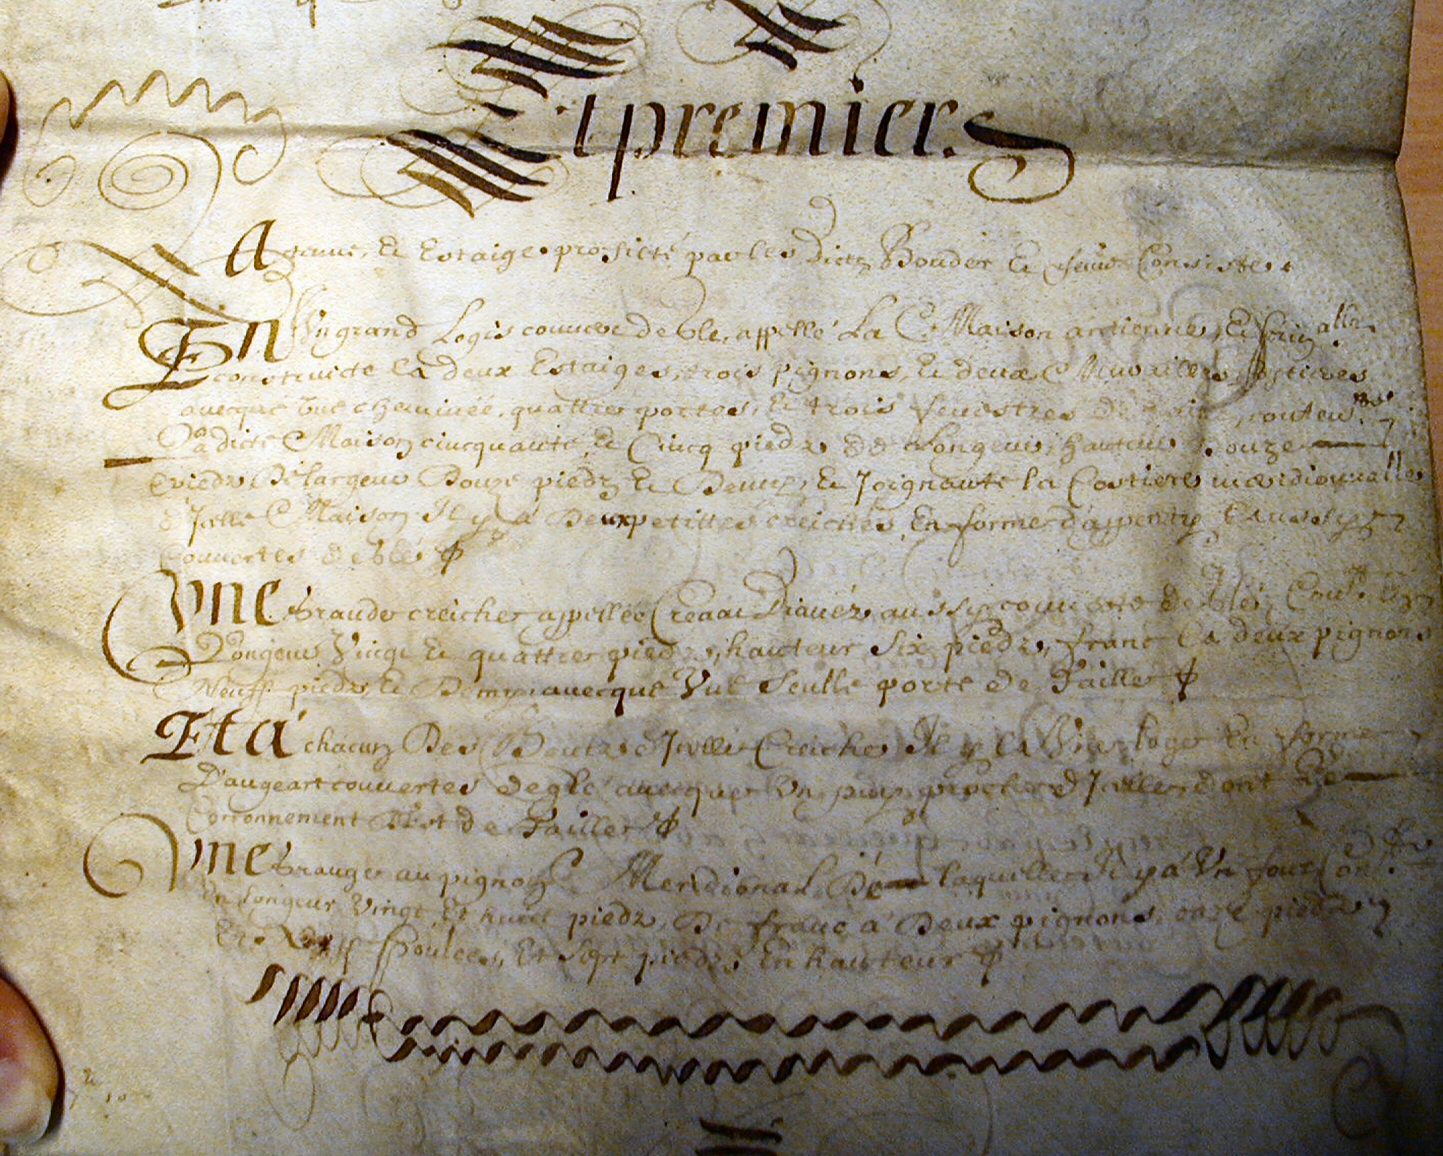 Et premier.
A tenue, Et Estaige proficté par les dictz Bouder Et femme Consiste
En Ung grand Logis couvert de glé, appellé La Maison antienne, Et
construicte a deux Estaiges, trois pignons, Et deux
avecque une cheminée, quattre portes, Et trois fenestres de
La dicte Maison cincquante Et Cincq piedz de Longeur, hauteur Douze
piedz, De largeur Douze piedz Et Demy, Et Joignante la Costiere meridionalle
d'Jcelle Maison Il y a Deux petittes creiches, En forme d'appenty aussy
couvertes de glé
Une Grande creiche appellée aussy couverte de glé,
Longeur Vingt Et quattre piedz, hauteur Six piedz, franc a deux pignons
Neuff piedz Et Demy, avecque Une Seulle porte de Taille
Et a chacun Des Boutz d'Jcelle Creiche Il y a Une loge En forme
D'augeart couvertes de glé avecque Un puiz pres d'Jcelles, dont Le
Couronnement Est de Taille
Une Grange au pignon Meridional De laquelle Il y a Un four, Cont.
En Longeur Vingt Et huict piedz, De franc a Deux pignons, onze piedz
Et Poulces, Et Sept piedz En hauteur